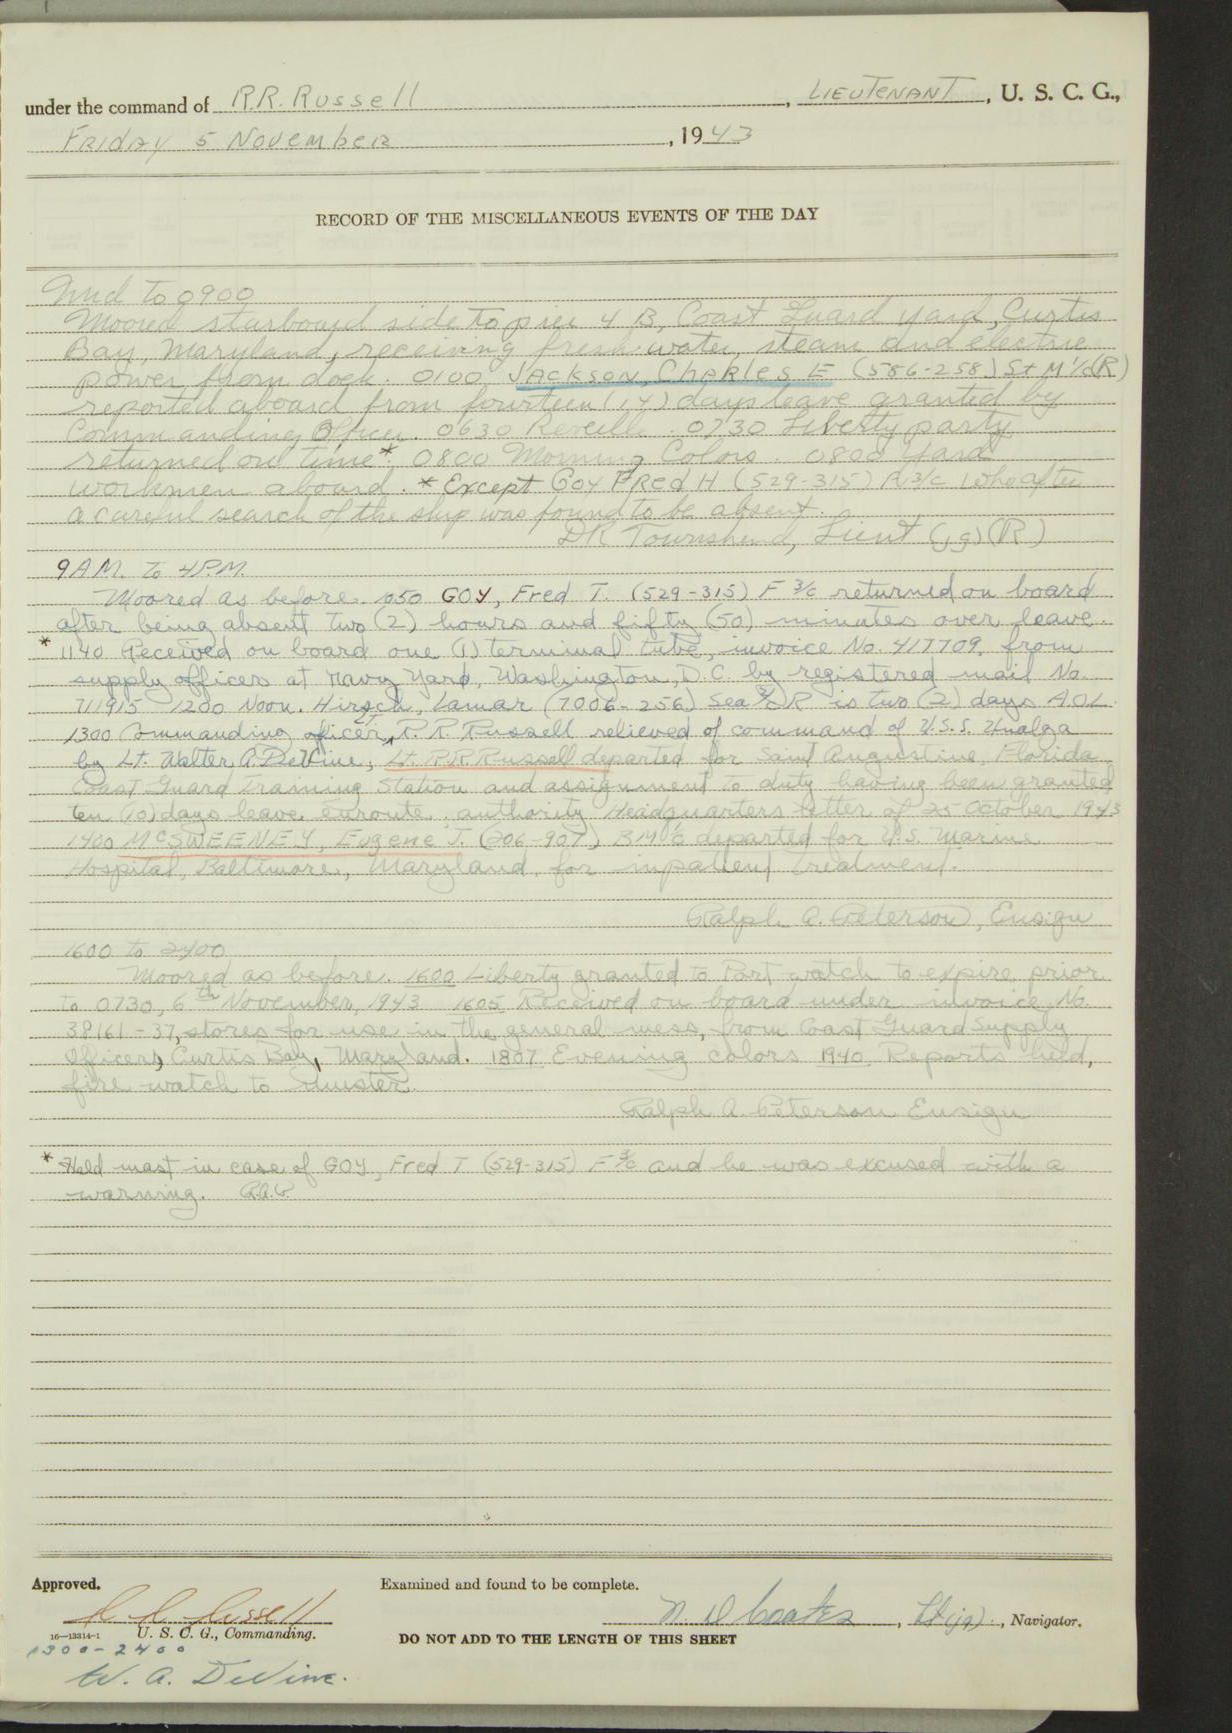 under the command of R.R. Russell, LIEUTENANT, U. S. C. G.,
Friday 5 November, 1943
RECORD OF THE MISCELLANEOUS EVENTS OF THE DAY
Mid to 0900
Moored starboard side to pier 4 B, Coast Guard Yard, Curtis
Bay, Maryland, receiving fresh water, steam and electric
power from dock. 0100 JACKSON, Charles E (586-258) St M 1/c (R)
reported aboard from fourteen (14) days leave granted by
Commanding Officer. 0630 Reveille. 0730 Liberty party
returned on time*. 0800 Morning Colors. 0800 Yard
workmen aboard. * Except Goy Fred H (529-315) F 3/c who after
a careful search of the ship was found to be absent.
DR Townshend, Lieut (jg) (R)
9 A.M. to 4 P.M.
Moored as before. 1050 GOY, Fred T. (529-315) F 3/c returned on board
after being absent two (2) hours and fifty (50) minutes over leave.
* 1140 Received on board one (1) terminal tube, invoice No. 417709, from
supply officer at Navy Yard, Washington, D.C. by registered mail No.
711915 1200 Noon. Hirsch, Lamar (7006-256) Sea 2/c R is two (2) days A.O.L.
1300 Commanding officer, Lt. R.R. Russell relieved of command of U.S.S. Unalga
by Lt. Walter A. DeVine; Lt. R.R. Russell departed for Saint Augustine, Florida
Coast Guard Training Station and assignment to duty having been granted
ten (10) days leave enroute. authority Headquarters letter of 25 October 1943
1400 McSWEENEY, Eugene J. (206-907) BM 1/c departed for U.S. Marine
Hospital, Baltimore, Maryland, for inpatient treatment.
Ralph A. Peterson, Ensign
1600 to 2400
Moored as before. 1600 Liberty granted to Port watch to expire prior
to 0730, 6th November, 1943 1605 Received on board under invoice No.
38161-37, stores for use in the general mess, from Coast Guard Supply
Officer, Curtis Bay, Maryland. 1807 Evening colors 1940 Reports held,
fire watch to muster.
Ralph A. Peterson Ensign
* Held mast in case of GOY, Fred T (529-315) F 3/c and he was excused with a
warning. R.A.P.
Approved.
Examined and found to be complete.
R R Russell
U. S. C. G., Commanding.
16—13314-1
Coates, Lt (jg)., Navigator.
DO NOT ADD TO THE LENGTH OF THIS SHEET
1300-2400
W. A. DeVine.